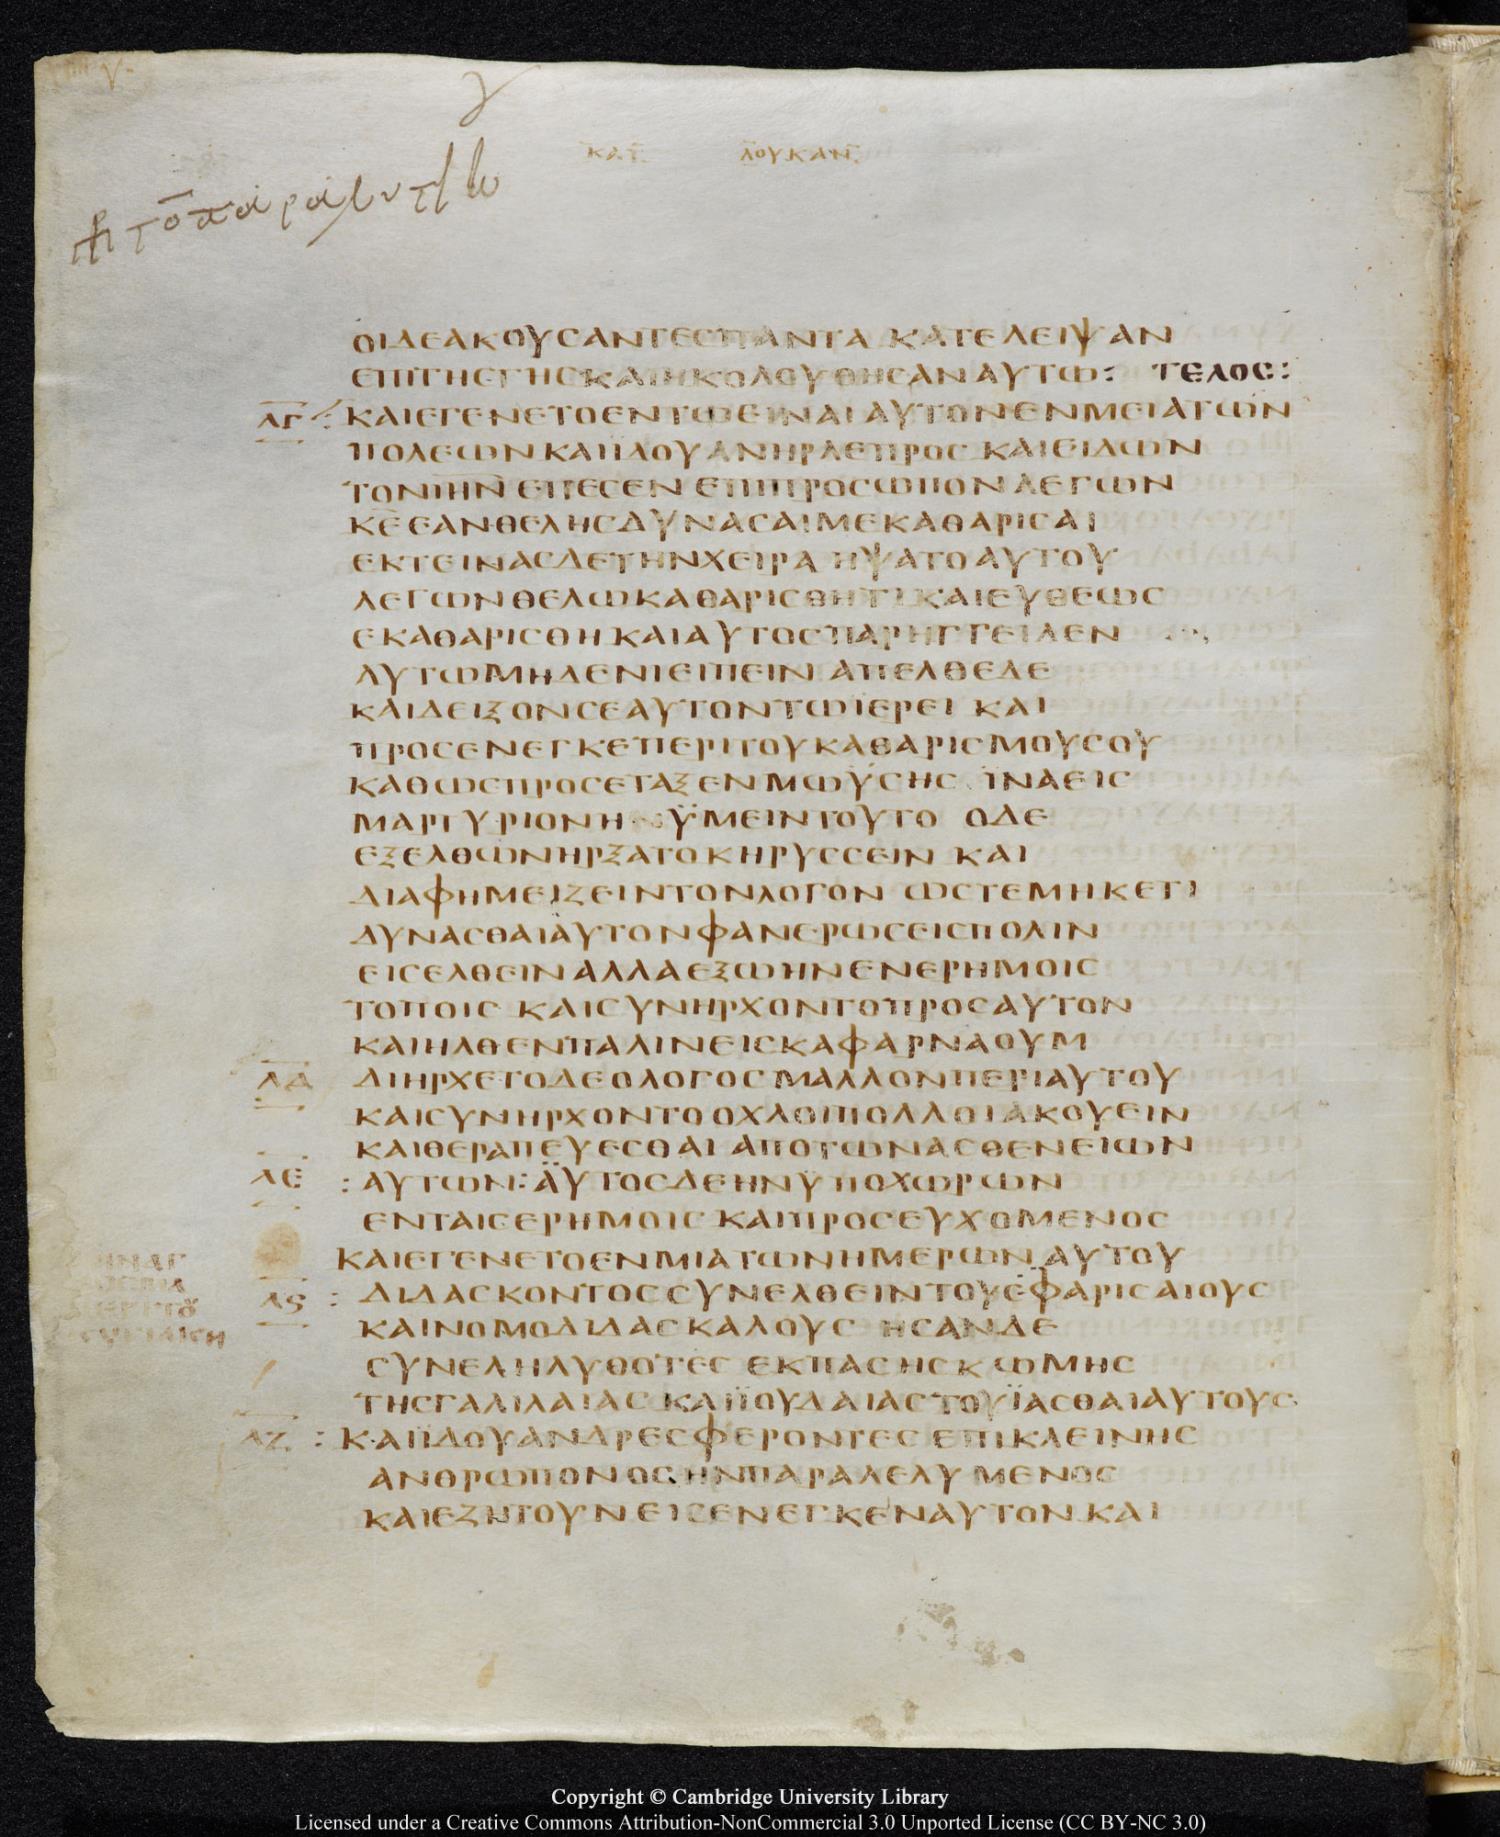 ΚΑΤ ΛΟΥΚΑΝ
ΟΙΔΕΑΚΟΥΣΑΝΤΕΣΠΑΝΤΑ ΚΑΤΕΛΕΙΨΑΝ
ΕΠΙΤΗΣΓΗΣΚΑΙΗΚΟΛΟΥΘΗΣΑΝΑΥΤΩ: ΤΕΛΟΣ:
ΛΓ : ΚΑΙΕΓΕΝΕΤΟΕΝΤΩΕΙΝΑΙΑΥΤΟΝΕΝΜΕΙΑΤΩΝ
ΠΟΛΕΩΝΚΑΙΪΔΟΥΑΝΗΡΛΕΠΡΟΣ ΚΑΙΕΙΔΩΝ
ΤΟΝΙΗΝ ΕΠΕΣΕΝ ΕΠΙΠΡΟΣΩΠΟΝ ΛΕΓΩΝ
ΚΕ ΕΑΝΘΕΛΗΣΔΥΝΑΣΑΙΜΕΚΑΘΑΡΙΣΑΙ
ΕΚΤΕΙΝΑΣΔΕΤΗΝΧΕΙΡΑ ΗΨΑΤΟΑΥΤΟΥ
ΛΕΓΩΝΘΕΛΩΚΑΘΑΡΙΣΘΗΤΙ ΚΑΙΕΥΘΕΩΣ
ΕΚΑΘΑΡΙΣΘΗ ΚΑΙΑΥΤΟΣΠΑΡΗΓΓΕΙΛΕΝ
ΑΥΤΩΜΗΔΕΝΙΕΙΠΕΙΝ ΑΠΕΛΘΕΔΕ
ΚΑΙΔΕΙΞΟΝΣΕΑΥΤΟΝΤΩΪΕΡΕΙ ΚΑΙ
ΠΡΟΣΕΝΕΓΚΕΠΕΡΙΤΟΥΚΑΘΑΡΙΣΜΟΥΣΟΥ
ΚΑΘΩΣΠΡΟΣΕΤΑΞΕΝΜΩΫΣΗΣ ΪΝΑΕΙΣ
ΜΑΡΤΥΡΙΟΝΗ ΫΜΕΙΝΤΟΥΤΟ ΟΔΕ
ΕΞΕΛΘΩΝΗΡΞΑΤΟΚΗΡΥΣΣΕΙΝ ΚΑΙ
ΔΙΑΦΗΜΕΙΖΕΙΝΤΟΝΛΟΓΟΝ ΩΣΤΕΜΗΚΕΤΙ
ΔΥΝΑΣΘΑΙΑΥΤΟΝΦΑΝΕΡΩΣΕΙΣΠΟΛΙΝ
ΕΙΣΕΛΘΕΙΝΑΛΛΑΕΞΩΗΝΕΝΕΡΗΜΟΙΣ
ΤΟΠΟΙΣ ΚΑΙΣΥΝΗΡΧΟΝΤΟΠΡΟΣΑΥΤΟΝ
ΚΑΙΗΛΘΕΝΠΑΛΙΝΕΙΣΚΑΦΑΡΝΑΟΥΜ
ΛΔ ΔΙΗΡΧΕΤΟΔΕΟΛΟΓΟΣΜΑΛΛΟΝΠΕΡΙΑΥΤΟΥ
ΚΑΙΣΥΝΗΡΧΟΝΤΟΟΧΛΟΙΠΟΛΛΟΙΑΚΟΥΕΙΝ
ΚΑΙΘΕΡΑΠΕΥΕΣΘΑΙ ΑΠΟΤΩΝΑΣΘΕΝΕΙΩΝ
ΛΕ : ΑΥΤΩΝ: ΑΥΤΟΣΔΕΗΝΫΠΟΧΩΡΩΝ
ΕΝΤΑΙΣΕΡΗΜΟΙΣ ΚΑΙΠΡΟΣΕΥΧΟΜΕΝΟΣ
ΚΑΙΕΓΕΝΕΤΟΕΝΜΙΑΤΩΝΗΜΕΡΩΝ ΑΥΤΟΥ
Λς : ΔΙΔΑΣΚΟΝΤΟΣΣΥΝΕΛΘΕΙΝΤΟΥΣΦΑΡΙΣΑΙΟΥΣ
ΚΑΙΝΟΜΟΔΙΔΑΣΚΑΛΟΥΣ ΗΣΑΝΔΕ
ΣΥΝΕΛΗΛΥΘΟΤΕΣ ΕΚΠΑΣΗΣΚΩΜΗΣ
ΤΗΣΓΑΛΙΛΑΙΑΣ ΚΑΙΪΟΥΔΑΙΑΣΤΟΥΪΑΣΘΑΙΑΥΤΟΥΣ
ΛΖ : ΚΑΙΪΔΟΥΑΝΔΡΕΣΦΕΡΟΝΤΕΣ ΕΠΙΚΛΕΙΝΗΣ
ΑΝΘΡΩΠΟΝΟΣΗΝΠΑΡΑΛΕΛΥΜΕΝΟΣ
ΚΑΙΕΖΗΤΟΥΝΕΙΣΕΝΕΓΚΕΝΑΥΤΟΝ ΚΑΙ
Copyright © Cambridge University Library
Licensed under a Creative Commons Attribution-NonCommercial 3.0 Unported License (CC BY-NC 3.0)